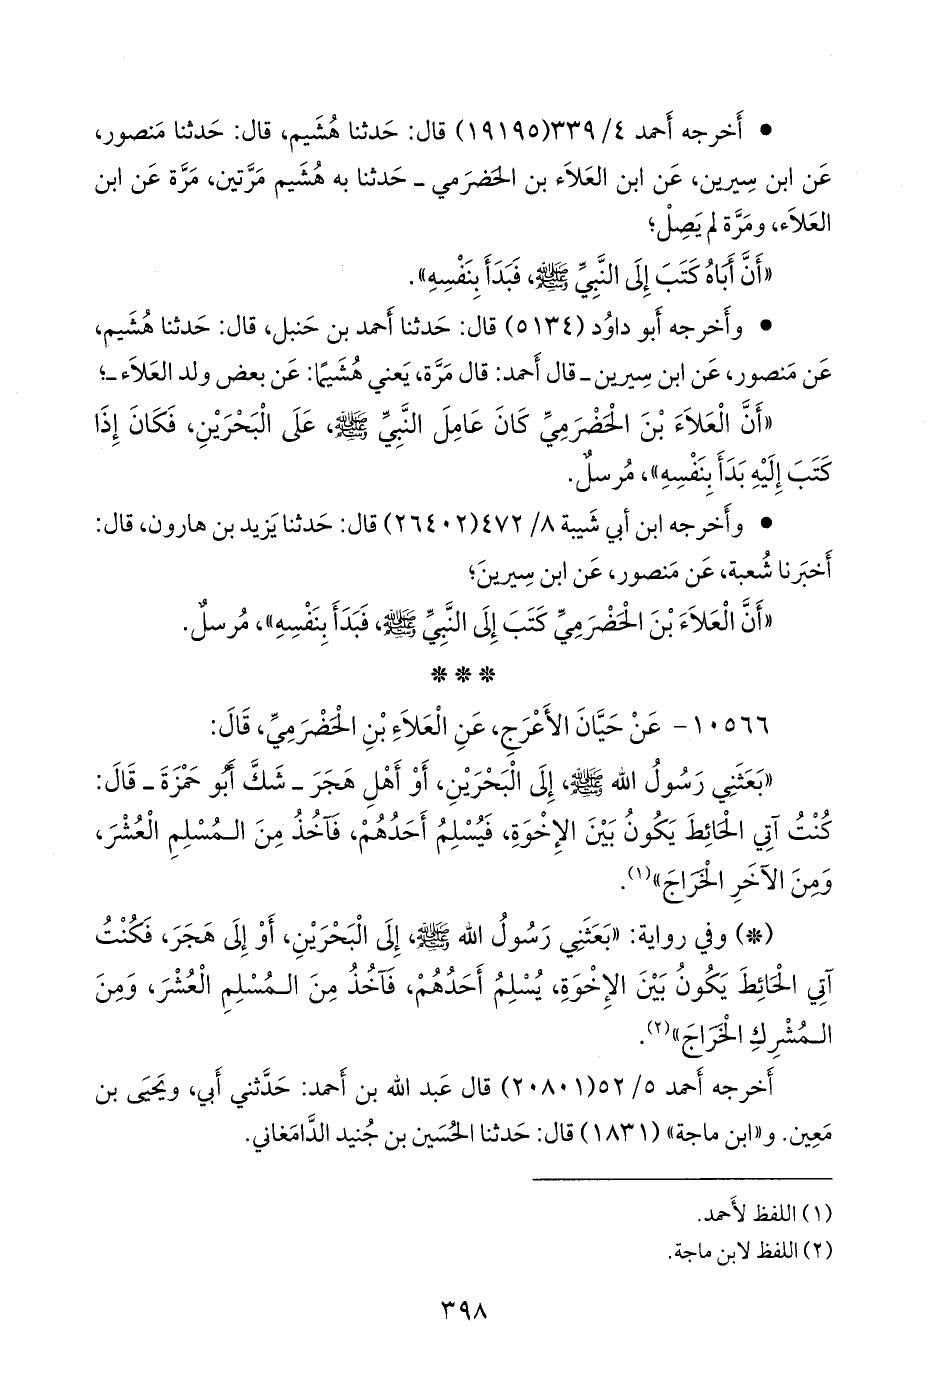 • أَخرجه أَحمد ٤/ ٣٣٩(١٩١٩٥) قال: حَدثنا هُشَيم، قال: حَدثنا مَنصور،
عَن ابن سِيرين، عَن ابن العَلاَء بن الحَضرَمي ـ حَدثنا به هُشَيم مَرَّتين، مَرَّة عَن ابن
العَلاَء، ومَرَّة لم يَصِلْ؛
«أَنَّ أَبَاهُ كَتَبَ إِلَى النَّبِيِّ ﷺ، فَبَدَأَ بِنَفْسِهِ».
• وأَخرجه أَبو داوُد (٥١٣٤) قال: حَدثنا أَحمد بن حَنبل، قال: حَدثنا هُشَيم،
عَن مَنصور، عَن ابن سِيرين ـ قال أَحمد: قال مَرَّة، يَعني هُشَيمًا: عَن بعض ولد العَلاَء ـ؛
«أَنَّ الْعَلاَءَ بْنَ الْحَضْرَمِيِّ كَانَ عَامِلَ النَّبِيِّ ﷺ، عَلَى الْبَحْرَيْنِ، فَكَانَ إِذَا
كَتَبَ إِلَيْهِ بَدَأَ بِنَفْسِهِ»، مُرسلٌ.
• وأَخرجه ابن أبي شَيبة ٨/ ٤٧٢(٢٦٤٠٢) قال: حَدثنا يَزيد بن هارون، قال:
أَخبَرنا شُعبة، عَن مَنصور، عَن ابن سِيرينَ؛
«أَنَّ الْعَلاَءَ بْنَ الْحَضْرَمِيِّ كَتَبَ إِلَى النَّبِيِّ ﷺ، فَبَدَأَ بِنَفْسِهِ»، مُرسلٌ.
* * *
١٠٥٦٦- عَنْ حَيَّانَ الأَعْرَجِ، عَنِ الْعَلاَءِ بْنِ الْحَضْرَمِيِّ، قَالَ:
«بَعَثَنِي رَسُولُ الله ﷺ، إِلَى الْبَحْرَيْنِ، أَوْ أَهْلِ هَجَرَ ـ شَكَّ أَبُو حَمْزَةَ ـ قَالَ:
كُنْتُ آتِي الْحَائِطَ يَكُونُ بَيْنَ الإِخْوَةِ، فَيُسْلِمُ أَحَدُهُمْ، فَآخُذُ مِنَ الـمُسْلِمِ الْعُشْرَ،
وَمِنَ الآخَرِ الْخَرَاجَ»(١).
(*) وفي رواية: «بَعَثَنِي رَسُولُ الله ﷺ، إِلَى الْبَحْرَيْنِ، أَوْ إِلَى هَجَرَ، فَكُنْتُ
آتِي الْحَائِطَ يَكُونُ بَيْنَ الإِخْوَةِ، يُسْلِمُ أَحَدُهُمْ، فَآخُذُ مِنَ الـمُسْلِمِ الْعُشْرَ، وَمِنَ
الـمُشْرِكِ الْخَرَاجَ»(٢).
أَخرجه أَحمد ٥/ ٥٢(٢٠٨٠١) قال عَبد الله بن أَحمد: حَدَّثني أَبي، ويَحيَى بن
مَعِين. و«ابن ماجة» (١٨٣١) قال: حَدثنا الحُسَين بن جُنيد الدَّامَغاني.
(١) اللفظ لأَحمد.
(٢) اللفظ لابن ماجة.
٣٩٨